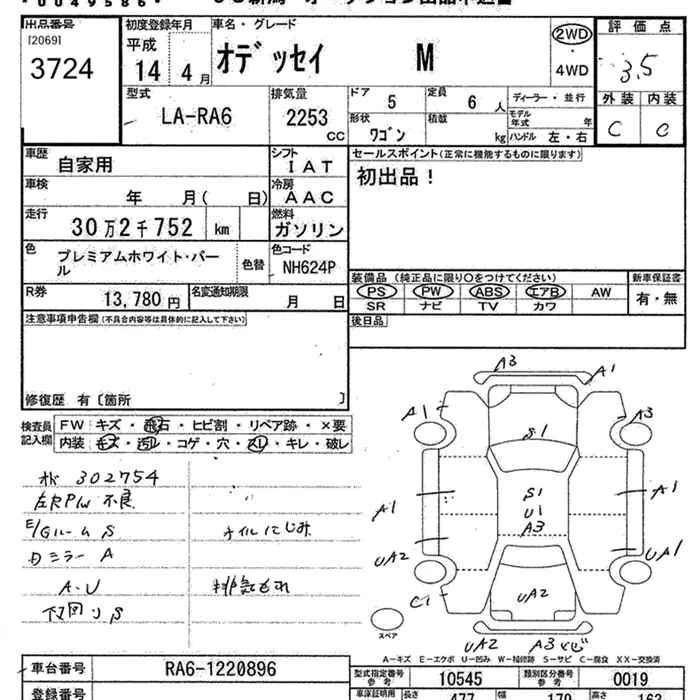 0049586
出品番号
[2069]
3724
初度登録年月
平成
14年4月
車名・グレード
オデッセイ M
2WD
・
4WD
評価点
3.5
外装 内装
C C
型式
LA-RA6
排気量
2253
CC
ドア
5
定員
6人
ディーラー・並行
形状
ワゴン
積載
kg
モデル年式 年
ハンドル 左・右
車歴
自家用
シフト
IAT
セールスポイント(正常に機能するものに限ります)
初出品!
車検
年 月( 日)
冷房
AAC
走行
30万2千752 km
燃料
ガソリン
色
プレミアムホワイト・パール
色替
色コード
NH624P
R券
13,780円
名変通知期限
月 日
装備品(純正品に限り○をつけてください)
PS PW ABS エアB AW
SR ナビ TV カワ
新車保証書
有・無
後日品
注意事項申告欄(不具合内容等は具体的に記入して下さい)
修復歴 有〔箇所 〕
検査員記入欄
FW キズ・飛石・ヒビ割・リペア跡・×要
内装 キズ・汚レ・コゲ・穴・スレ・キレ・破レ
302754
左RPW 不良
E/Gルーム S
オイルにじみ
ミラー A
A・U
排気もれ
下回り S
A3
A1
A1
A3
S1
A1
S1
U1
A3
A1
UA2
UA1
C1
UA2
UA2
A3
スペア
A-キズ E-エクボ U-凹み W-補修跡 S-サビ C-腐食 XX-交換済
車台番号
RA6-1220896
型式指定番号
参考
10545
類別区分番号
参考
0019
登録番号
車庫証明用
長さ
477
幅
170
高さ
163